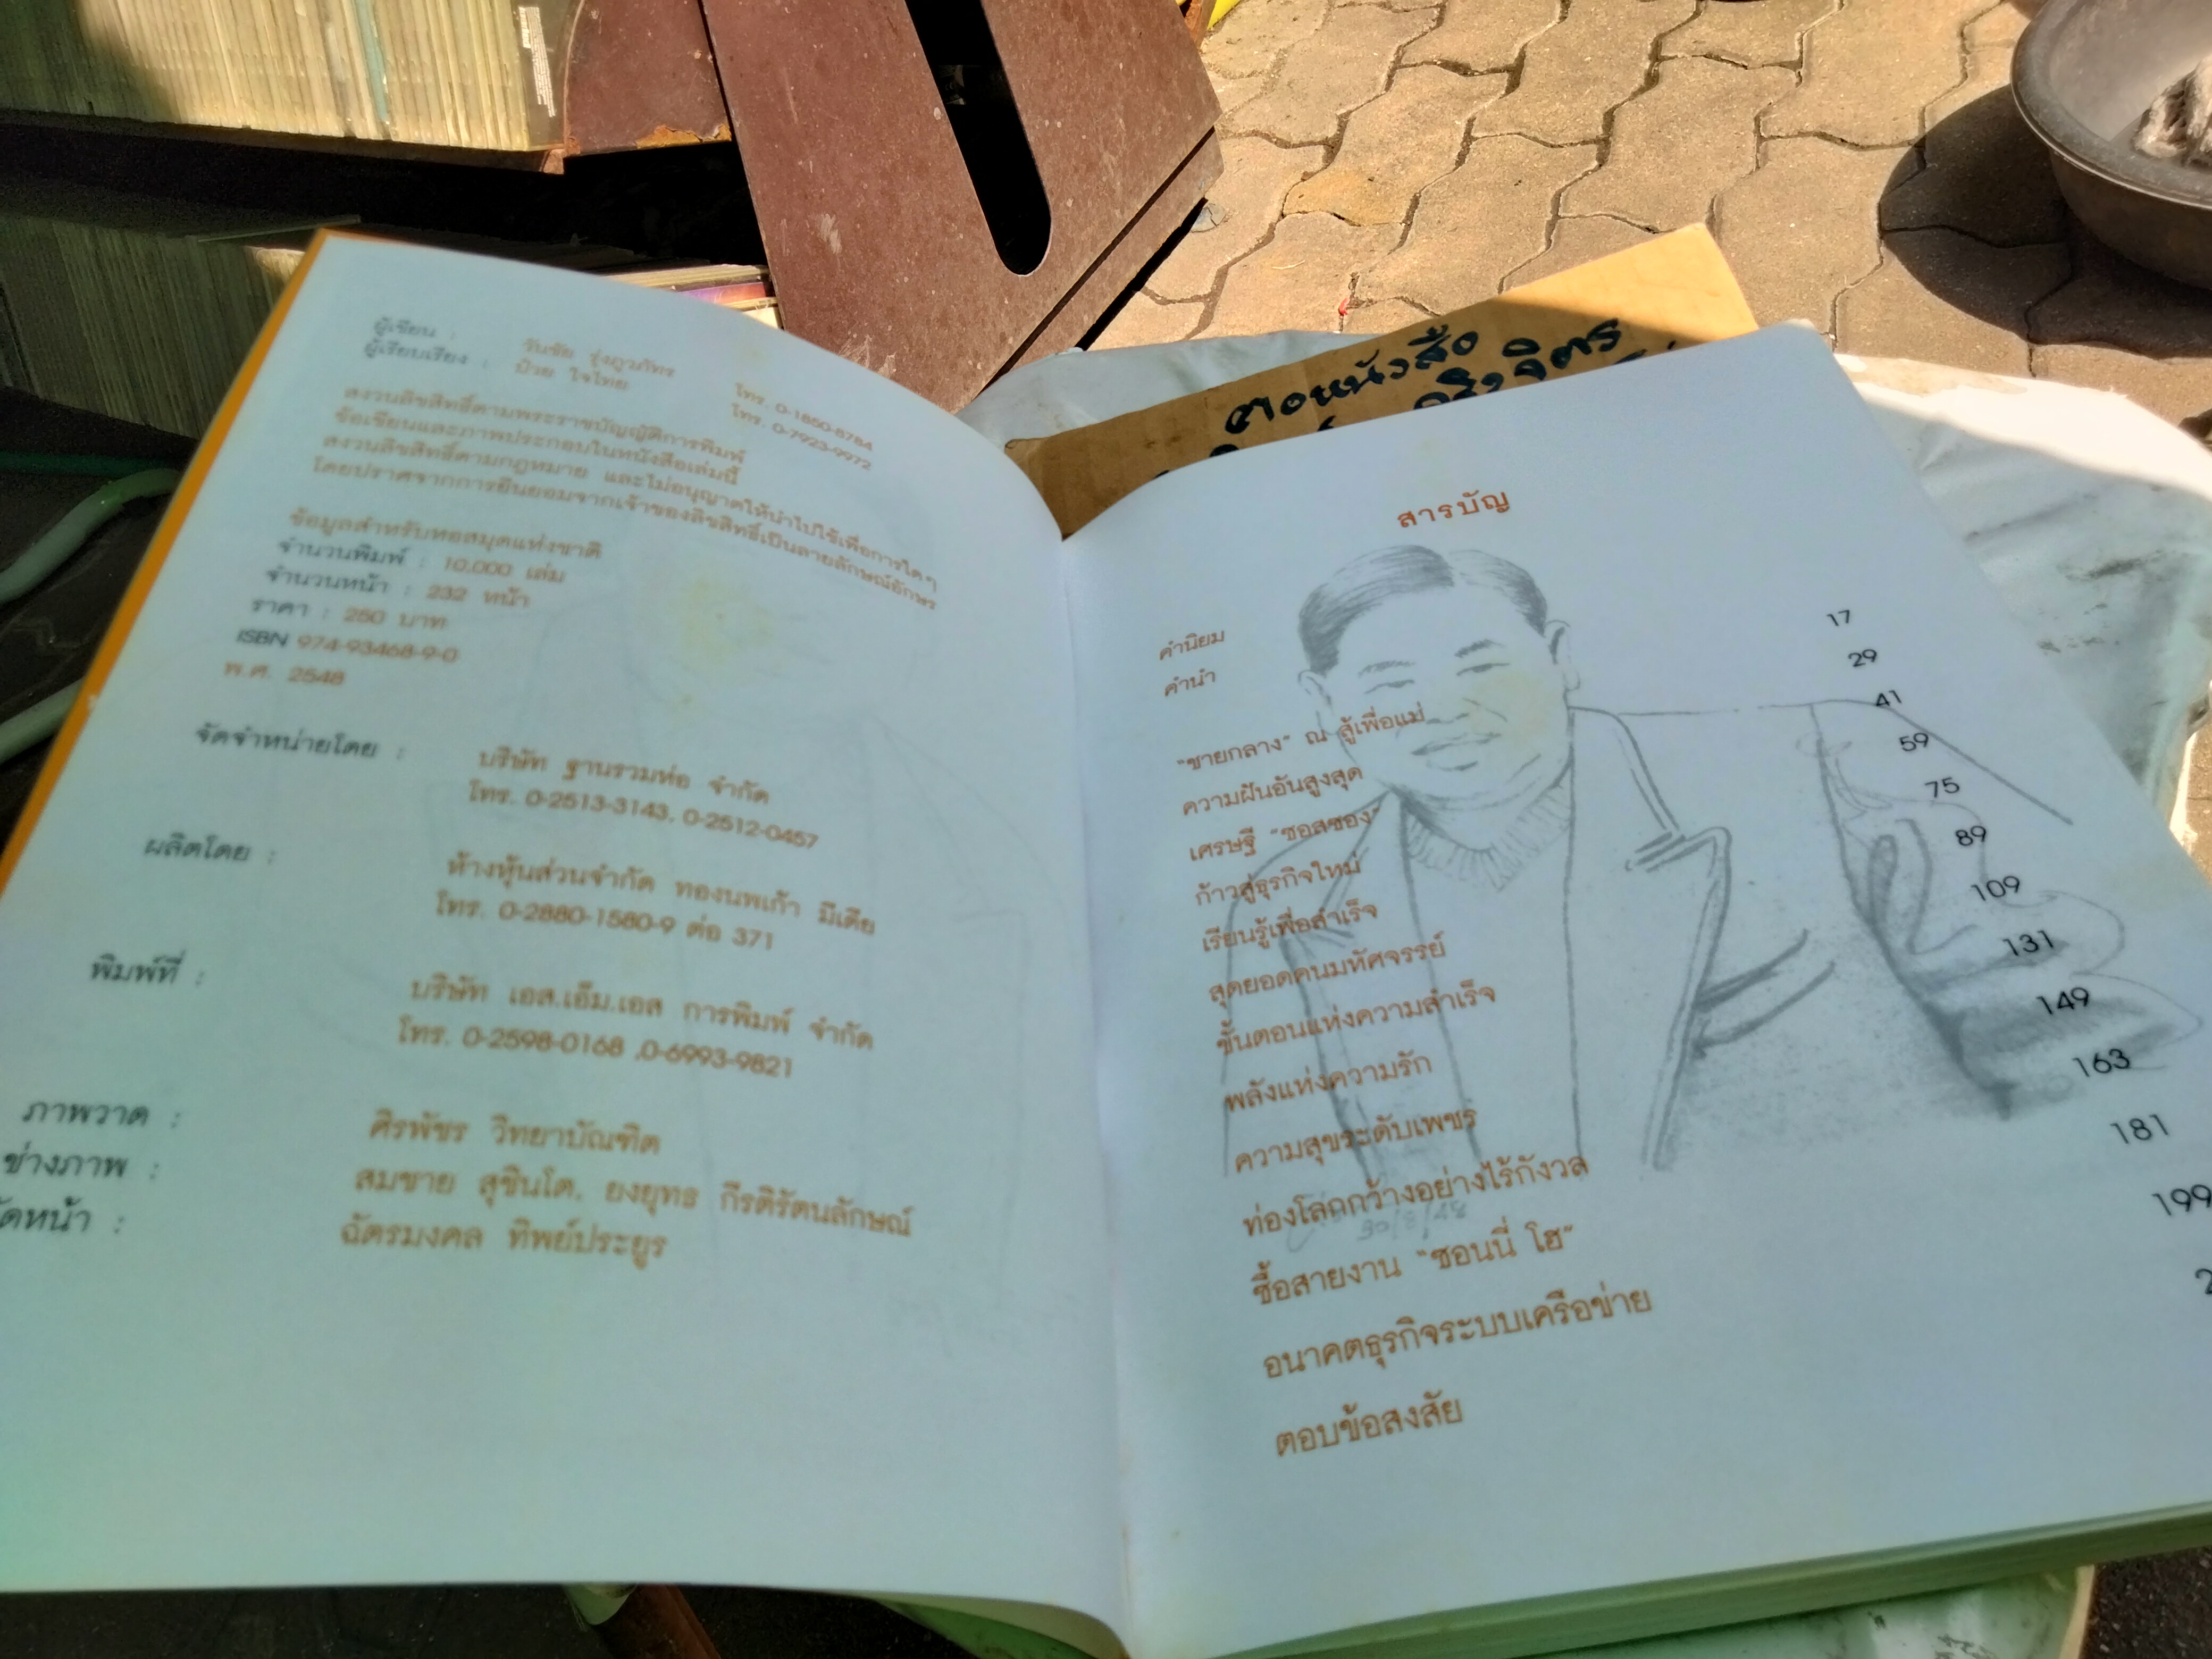 ผู้เขียน : วันชัย รุ่งภูวภัทร โทร. 0-1850-8784
ผู้เรียบเรียง : ป๋วย ใจไทย โทร. 0-7923-9972
สงวนลิขสิทธิ์ตามพระราชบัญญัติการพิมพ์
ข้อเขียนและภาพประกอบในหนังสือเล่มนี้
สงวนลิขสิทธิ์ตามกฎหมาย และไม่อนุญาตให้นำไปใช้เพื่อการใดๆ
โดยปราศจากการยินยอมจากเจ้าของลิขสิทธิ์เป็นลายลักษณ์อักษร
ข้อมูลสำหรับหอสมุดแห่งชาติ
จำนวนพิมพ์ : 10,000 เล่ม
จำนวนหน้า : 232 หน้า
ราคา : 250 บาท
ISBN 974-93468-9-0
พ.ศ. 2548
จัดจำหน่ายโดย : บริษัท ฐานรวมห่อ จำกัด
โทร. 0-2513-3143, 0-2512-0457
ผลิตโดย : ห้างหุ้นส่วนจำกัด ทองนพเก้า มีเดีย
โทร. 0-2880-1580-9 ต่อ 371
พิมพ์ที่ : บริษัท เอส.เอ็ม.เอส การพิมพ์ จำกัด
โทร. 0-2598-0168 ,0-6993-9821
ภาพวาด : ศิรพัชร วิทยาบัณฑิต
ช่างภาพ : สมชาย สุชินโต, ยงยุทธ กีรติรัตนลักษณ์
ัดหน้า : ฉัตรมงคล ทิพย์ประยูร
หนังสือ
สารบัญ
คำนิยม
คำนำ
"ชายกลาง" ณ สู้เพื่อแม่ 17
ความฝันอันสูงสุด 29
เศรษฐี "ซอสซอง" 41
ก้าวสู่ธุรกิจใหม่ 59
เรียนรู้เพื่อสำเร็จ 75
สุดยอดคนมหัศจรรย์ 89
ขั้นตอนแห่งความสำเร็จ 109
พลังแห่งความรัก 131
ความสุขระดับเพชร 149
ท่องโลกกว้างอย่างไร้กังวล 163
ซื้อสายงาน "ซอนนี่ โฮ" 181
อนาคตธุรกิจระบบเครือข่าย 199
ตอบข้อสงสัย 2